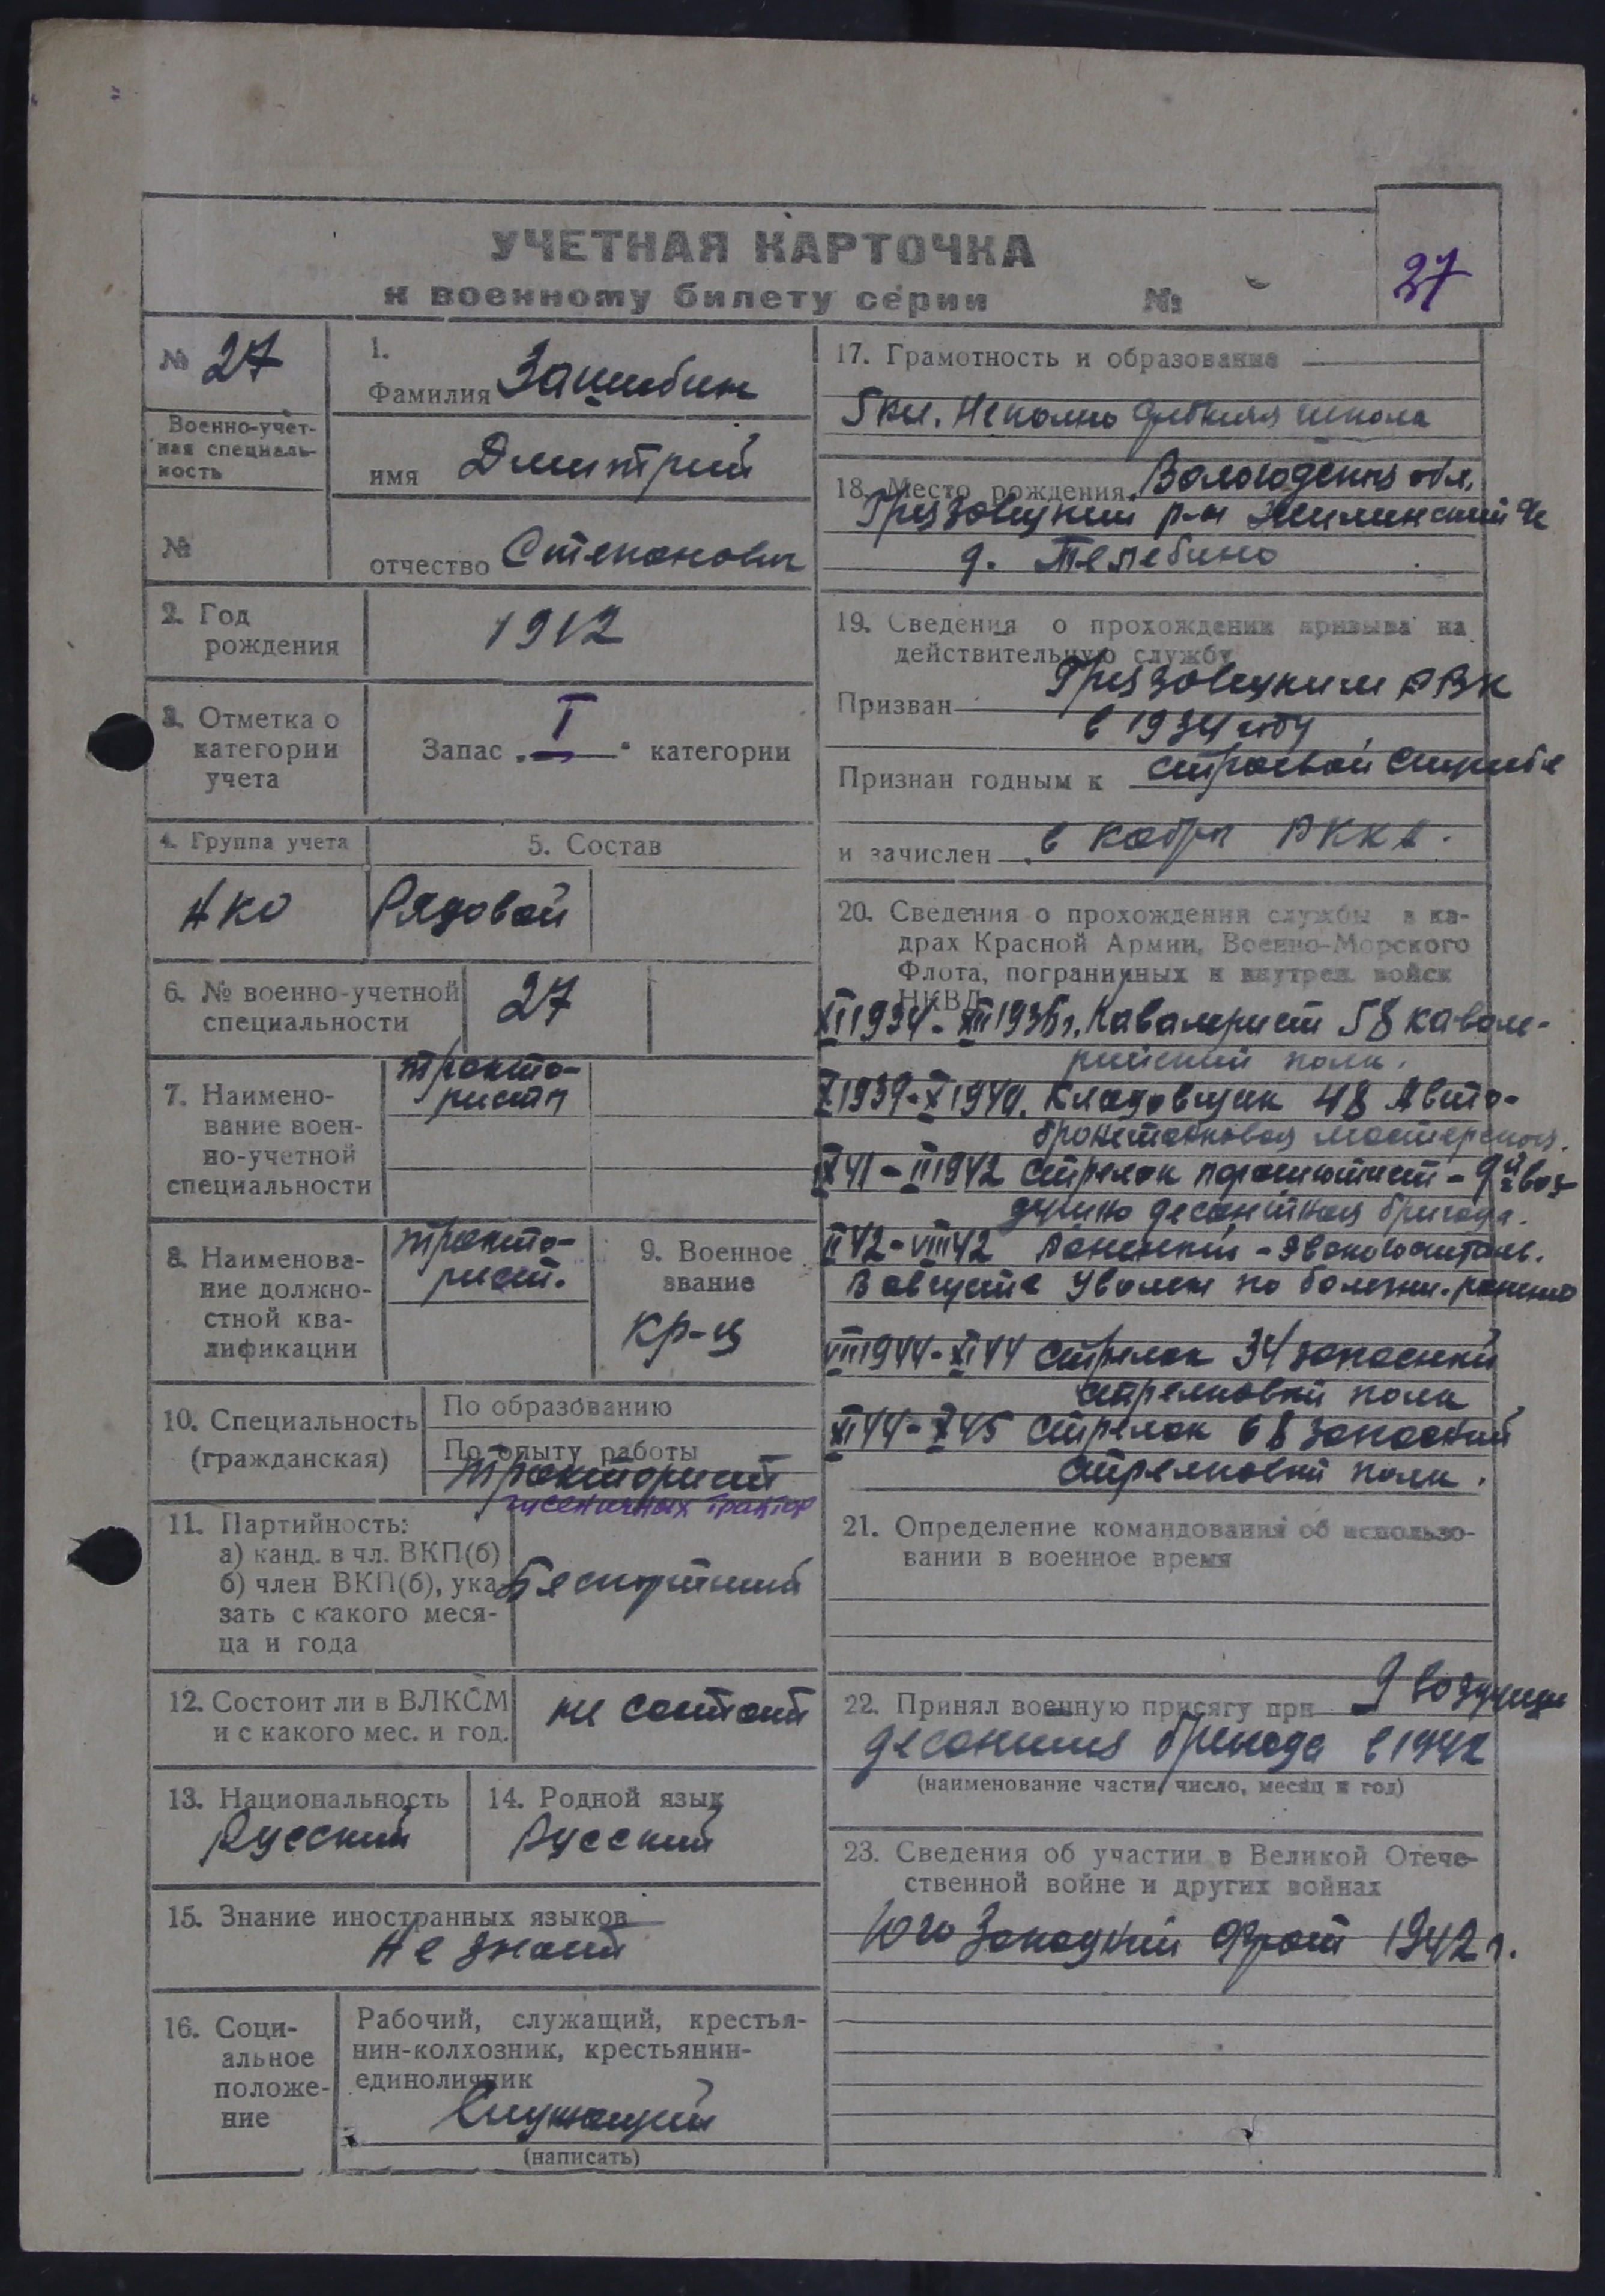 УЧЕТНАЯ КАРТОЧКА
к военному билету серии №
27
№ 27
Военно-учет-
ная специаль-
ность
№
1.
Фамилия Зашибин
имя Дмитрий
отчество Степанович
2. Год
рождения
1912
3. Отметка о
категории
учета
Запас „I“ категории
4. Группа учета
5. Состав
АКО Рядовой
6. № военно-учетной
специальности
27
7. Наимено-
вание воен-
но-учетной
специальности
тракто-
ристы
8. Наименова-
ние должно-
стной ква-
лификации
тракто-
рист.
9. Военное
звание
кр-ц
10. Специальность
(гражданская)
По образованию
По опыту работы
тракторист
гусеничных трактор
11. Партийность:
а) канд. в чл. ВКП(б)
б) член ВКП(б), ука-
зать с какого меся-
ца и года
12. Состоит ли в ВЛКСМ
и с какого мес. и год.
не состоит
13. Национальность
Русский
14. Родной язык
Русский
15. Знание иностранных языков
Не знает
16. Соци-
альное
положе-
ние
Рабочий, служащий, крестья-
нин-колхозник, крестьянин-
единоличник
Служащий
(написать)
17. Грамотность и образование
5 кл. Неполно средняя школа
18. Место рождения Вологодская обл.
Грязовецкий р-н Жилинский
д. Телебино
19. Сведения о прохождении призыва на
действительную службу
Призван Грязовецким РВК
в 1934 году
Признан годным к строевой службе
и зачислен в кадры РККА.
20. Сведения о прохождении службы в ка-
драх Красной Армии, Военно-Морского
Флота, пограничных и внутрен. войск
НКВД
XI 1934 - XII 1936 г. Кавалерист 58 кавале-
рийский полк.
X 1939 - X 1940. Кладовщик 48 Авто-
бронетанковая мастерская.
IX 41 - II 1942 стрелок парашютист - 9й воз-
душно десантная бригада.
II 42 - VIII 42 Раненый - эвакогоспиталь.
В августе уволен по болезни.
VIII 1944 - XI 44 стрелок 34 запасный
стрелковый полк
XI 44 - X 45 стрелок 68 запасный
стрелковый полк.
21. Определение командования об использо-
вании в военное время
22. Принял военную присягу при 9 воздушно
десантная бригада в 1942
(наименование части, число, месяц и год)
23. Сведения об участии в Великой Отече-
ственной войне и других войнах
Юго Западный фронт 1942 г.